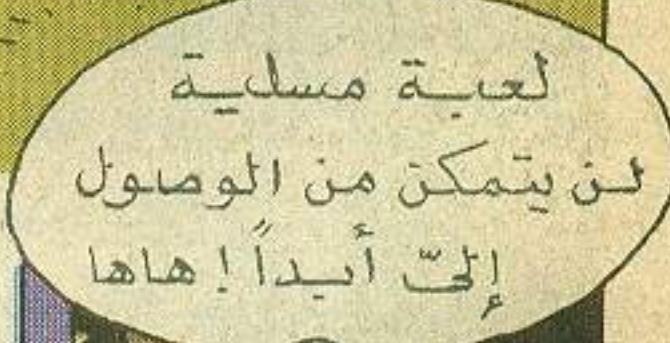 لعبة مسلية
لن يتمكن من الوصول
إليّ أبداً! هاها